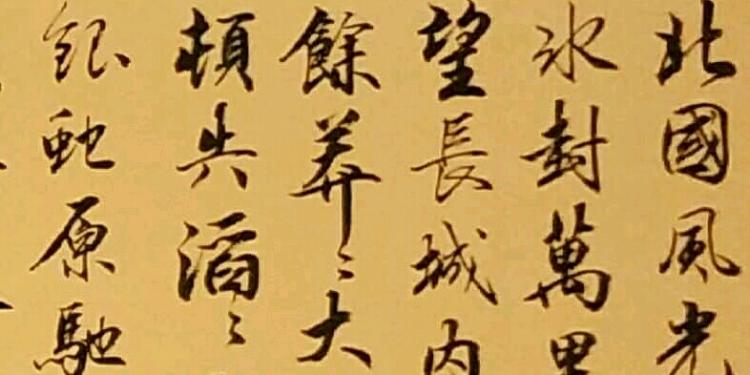 北國風光
冰封萬里
望長城内
餘莽〻大
頓失滔〻
銀蛇原馳